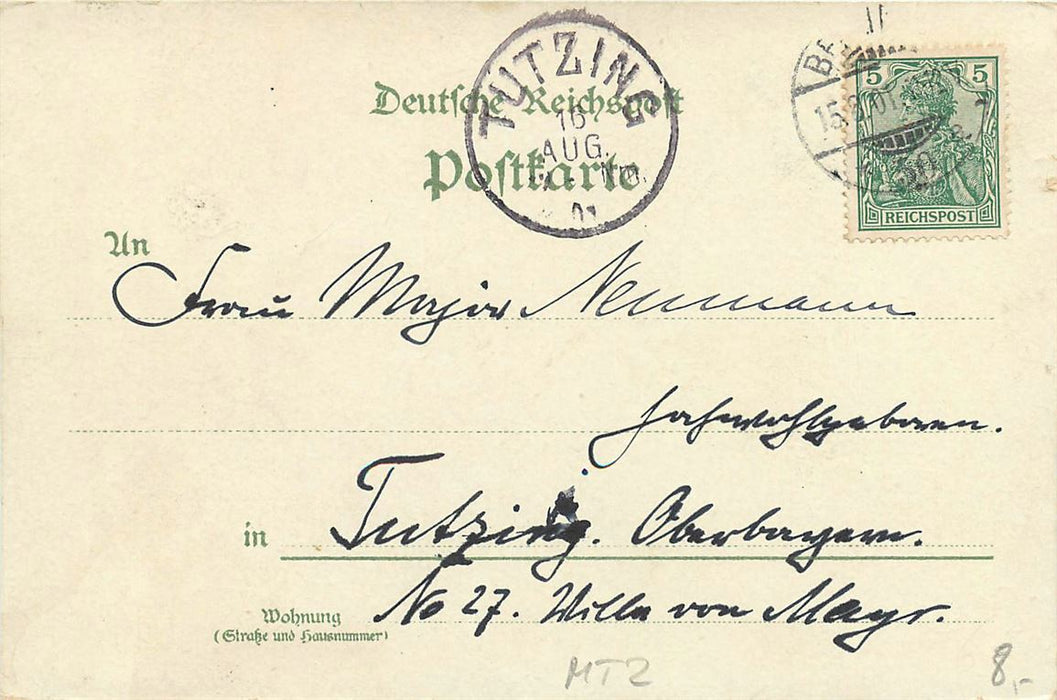 TUTZING
16
AUG.
Nm.
01
BERLIN
15.8.01
5 5
REICHSPOST
Deutsche Reichspost
Postkarte
An
Frau Major Neumann
Hochwohlgeboren.
in Tutzing. Oberbayern.
Wohnung No 27. Villa von Mayr.
(Straße und Hausnummer)
MTZ 8,-